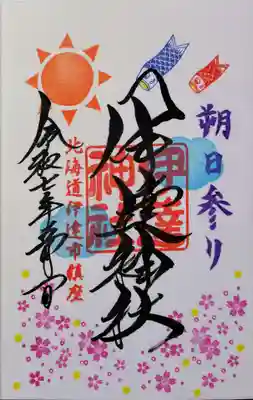 朔日参り
伊達神社
伊達
神社
北海道伊達市鎮座
令和七年五月一日